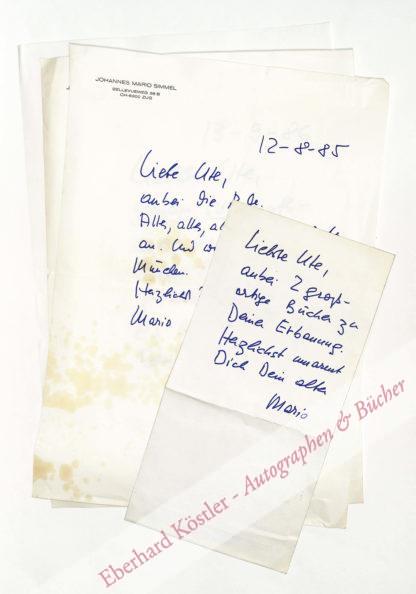 JOHANNES MARIO SIMMEL
BELLEVUEWEG 39 B
CH-6300 ZUG
12-8-85
Liebe Ute,
anbei die
Alles, alles,
an. Und
München.
Herzlichst
Mario
Liebste Ute,
anbei 2 groß-
artige Bücher zu
Deiner Erbauung.
Herzlichst umarmt
Dich Dein alter
Mario
Eberhard Köstler - Autographen & Bücher